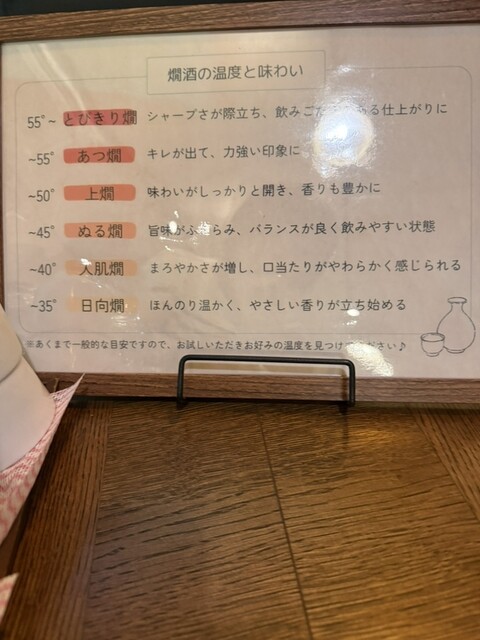 燗酒の温度と味わい
55°~ とびきり燗 シャープさが際立ち、飲みごたえのある仕上がりに
~55° あつ燗 キレが出て、力強い印象に
~50° 上燗 味わいがしっかりと開き、香りも豊かに
~45° ぬる燗 旨味がふくらみ、バランスが良く飲みやすい状態
~40° 人肌燗 まろやかさが増し、口当たりがやわらかく感じられる
~35° 日向燗 ほんのり温かく、やさしい香りが立ち始める
※あくまで一般的な目安ですので、お試しいただきお好みの温度を見つけてください♪